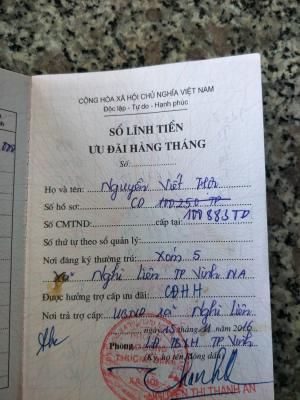 CỘNG HÒA XÃ HỘI CHỦ NGHĨA VIỆT NAM
Độc lập - Tự do - Hạnh phúc
SỔ LĨNH TIỀN
ƯU ĐÃI HÀNG THÁNG
Số:
Họ và tên: Nguyễn Viết
Số hồ sơ: CĐ 100250 TP
Số CMTND: cấp tại: 100883 TĐ
Số thứ tự theo sổ quản lý:
Nơi đăng ký thường trú: Xóm 5
Xã Nghi Liên TP Vinh NA
Được hưởng trợ cấp ưu đãi: CĐHH
Nơi trả trợ cấp: UBND xã Nghi Liên
ngày 15 tháng 11
Phòng LĐ TBXH TP Vinh
(Ký, họ tên, đóng dấu)
XÃ HỘI
NGUYỄN THỊ THANH AN